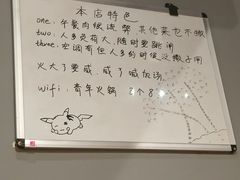 本店特色
one. 午餐肉很读 弊 其他菜也不嫩
two. 人多负荷大,随时要跳闸
three. 空调有但人多的时候没撒子用
火大了要喊 咸了喊
wifi:青年火锅 8个8